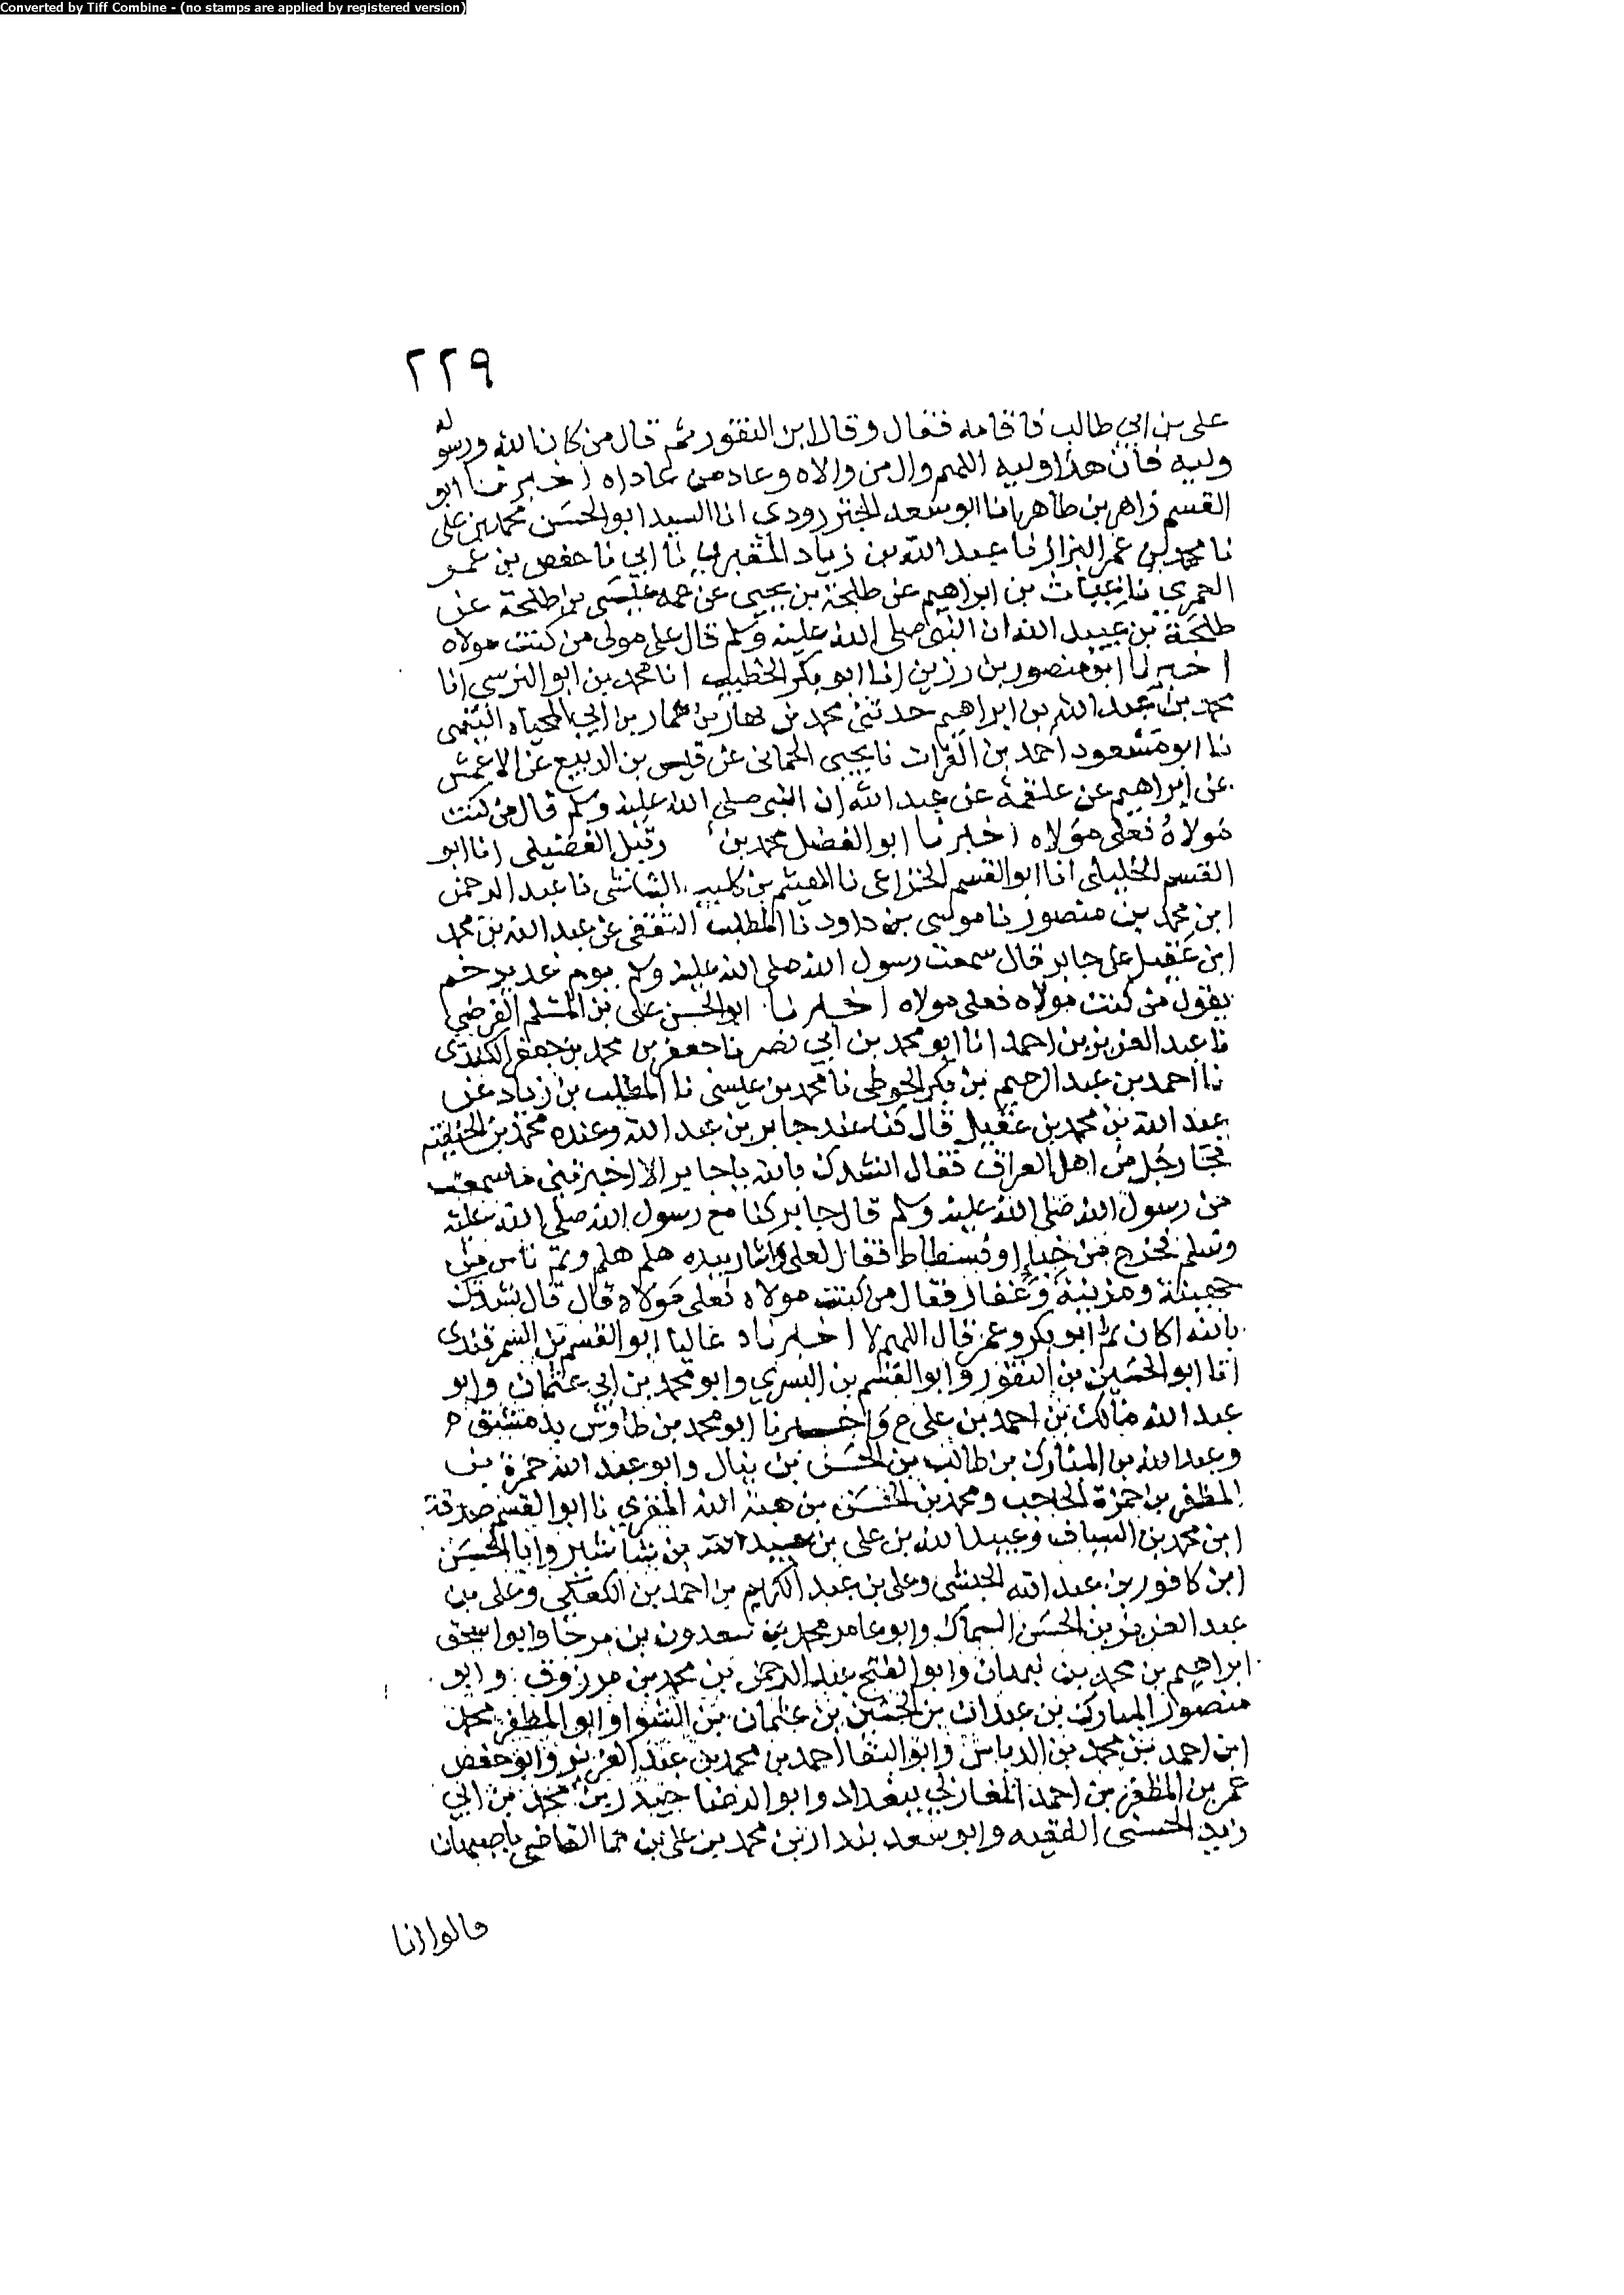 Converted by Tiff Combine - (no stamps are applied by registered version)
٢٢٩
على بن ابي طالب فاقامه فقال وقال ابن النقور ثم قال من كان الله ورسوله
وليه فان هذا وليه اللهم وال من والاه وعاد من عاداه اخبرنا ابو
القسم زاهر بن طاهر انا ابو سعد الجنزرودي انا السيد ابو الحسن محمد بن على
نا محمد بن عمر البزار نا عبد الله بن زياد المقبرى نا ابي نا حفص بن عمر
العمري نا غياث بن ابراهيم عن طلحة بن يحيى عن عمه عيسى بن طلحة عن
طلحة بن عبيد الله ان النبى صلى الله عليه وسلم قال على مولى من كنت مولاه
اخبرنا ابو منصور بن رزين انا ابو بكر الخطيب انا محمد بن ابو النرسي انا
محمد بن عبد الله بن ابراهيم حدثنى محمد بن نهار بن عمار بن ابي المحياه التيمى
نا ابو مسعود احمد بن الفرات نا يحيى الحمانى عن قيس بن الربيع عن الاعمش
عن ابراهيم عن علقمة عن عبد الله ان النبى صلى الله عليه وسلم قال من كنت
مولاه فعلى مولاه اخبرنا ابو الفضل محمد بن الفضيلى انا ابو
القسم الخليلى انا ابو القسم الخزاعى نا الهيثم بن كليب الشاشى نا عبد الرحمن
ابن محمد بن منصور نا موسى بن داود نا المطلب الثقفى عن عبد الله بن محمد
ابن عقيل عن جابر قال سمعت رسول الله صلى الله عليه وسلم يوم غدير خم
يقول من كنت مولاه فعلى مولاه اخبرنا ابو الحسن على بن المسلم الفرضي
نا عبد العزيز بن احمد انا ابو محمد بن ابي نصر نا جعفر بن محمد بن جعفر الكندى
نا احمد بن عبد الرحيم بن بكر الحوطى نا محمد بن عيسى نا المطلب بن زياد عن
عبد الله بن محمد بن عقيل قال كنا عند جابر بن عبد الله وعنده محمد بن الحنفية
فجا رجل من اهل العراق فقال انشدك بالله يا جابر الا اخبرتنى ما سمعت
من رسول الله صلى الله عليه وسلم قال جابر كنا مع رسول الله صلى الله عليه
وسلم فخرج من خباء او فسطاط فقال لعلى واشار بيده هلم هلم وثم ناس من
جهينة ومزينة وغفار فقال من كنت مولاه فعلى مولاه قال قال نشدتك
بالله اكان ثم ابو بكر وعمر قال اللهم لا اخبرناه عاليا ابو القسم بن السمرقندى
انا ابو الحسين بن النقور وابو القسم بن البسري وابو محمد بن ابي عثمان وابو
عبد الله مالك بن احمد بن على ح واخبرنا ابو محمد بن طاوس بدمشق
وعبد الله بن المبارك بن طالب بن الحسن بن نبال وابو عبد الله حمزة بن
المظفر بن حمزة الحاجب ومحمد بن الحسن بن هبة الله المقري نا ابو القسم صدقة
ابن محمد بن السياف وعبيد الله بن على بن عبيد الله بن شاشير وابا الحسين
ابن كافور بن عبد الله الحبشى وعلى بن عبد الكريم بن احمد بن الكعكى وعلى بن
عبد العزيز بن الحسن السماك وابو عامر محمد بن سعدون بن مرجا وابو اسحق
ابراهيم بن محمد بن نبهان وابو الفتح عبد الرحمن بن محمد بن مرزوق وابو
منصور المبارك بن عبدان بن الحسين بن عثمان بن الشوا وابو المظفر محمد
ابن احمد بن محمد بن الدباس وابو البقا احمد بن محمد بن عبد العزيز وابو حفص
عمر بن المظفر بن احمد المغازلي ببغداد وابو الرضا حيدر بن محمد بن ابي
زيد الحسنى الفقيه وابو سعد بندار بن محمد بن على بن القاضى باصبهان
قالوا انا